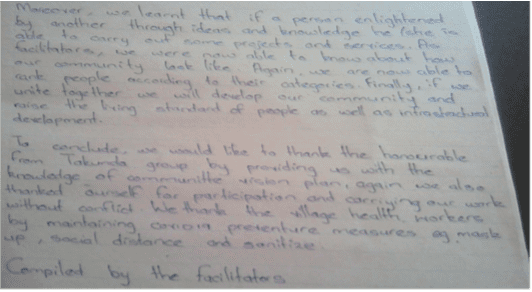 Moreover, we learnt that if a person enlightened
by another through ideas and knowledge he/she is
able to carry out some projects and services. As
facilitators, we were now able to know about how
our community look like. Again, we are now able to
rank people according to their categories. Finally, if we
unite together we will develop our community and
raise the living standard of people as well as infrastructural
development.
To conclude, we would like to thank the honourable
from Takunda group by providing us with the
knowledge of vision plan, again we also
thanked ourself for participation and carrying our work
without conflict. We thank the village health workers
by mantaining corona measures eg mask
up, social distance and sanitize.
Compiled by the facilitators